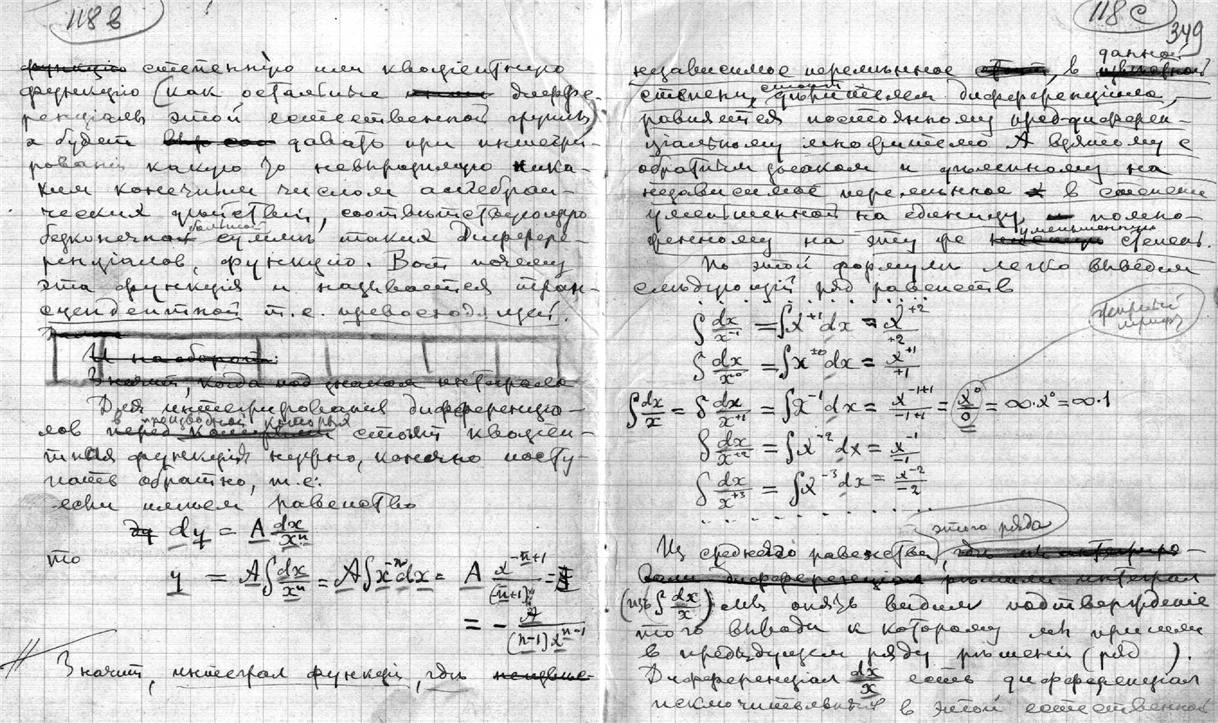 118 в
степенную или квоціентную
функцію (как остальные диффе-
ренціалы этой естественной группы)
а будет давать при интегри-
рованіи какую то невыразимую ника-
ким конечным числом алгебраи-
ческих дѣйствій, соотвѣтствующую
безконечной сумме таких дифере-
ренціалов, функцію. Вот почему
эта функція и называется тран-
сцендентной т.е. превосходящей.
И наоборот.
Значит, когда под знаком интеграла
Для интегрированія диференціа-
лов перед которых стоит квоціен-
тная функція нужно, конечно посту-
пать обратно, т.е.
если имѣем равенство
dy = A dx/xⁿ
то
y = A∫dx/xⁿ = A∫x⁻ⁿdx = A x⁻ⁿ⁺¹/(-n+1) =
= - A/((n-1)xⁿ⁻¹)
Значит, интеграл функціи, гдѣ
118 с
349
данной
независимое перемѣнное, в
степени, стоит дѣлителем диференціала,
равняется постоянному пред-диферен-
ціальному множителю A взятому с
обратным знаком и дѣленному на
независимое перемѣнное в степени
уменьшенной на единицу, помно-
уменьшенную
женному на эту же степень.
По этой формулѣ легко выведем
слѣдующій ряд равенств
∫dx/x⁻¹ = ∫x⁺¹dx = x⁺²/+2
∫dx/x⁰ = ∫x^±0 dx = x⁺¹/+1
∫dx/x = ∫dx/x⁺¹ = ∫x⁻¹dx = x⁻¹⁺¹/-1+1 = x⁰/0 = ∞·x⁰ = ∞·1
∫dx/x⁺² = ∫x⁻²dx = x⁻¹/-1
∫dx/x⁺³ = ∫x⁻³dx = x⁻²/-2
этого ряда
Из среднего равенства,
(изъ ∫dx/x) мы опять видим подтвержденіе
того вывода к которому мы пришли
в предыдущем ряду рѣшеній (ряд ).
Дифференціал dx/x есть дифференціал
исключительный в этой естественной